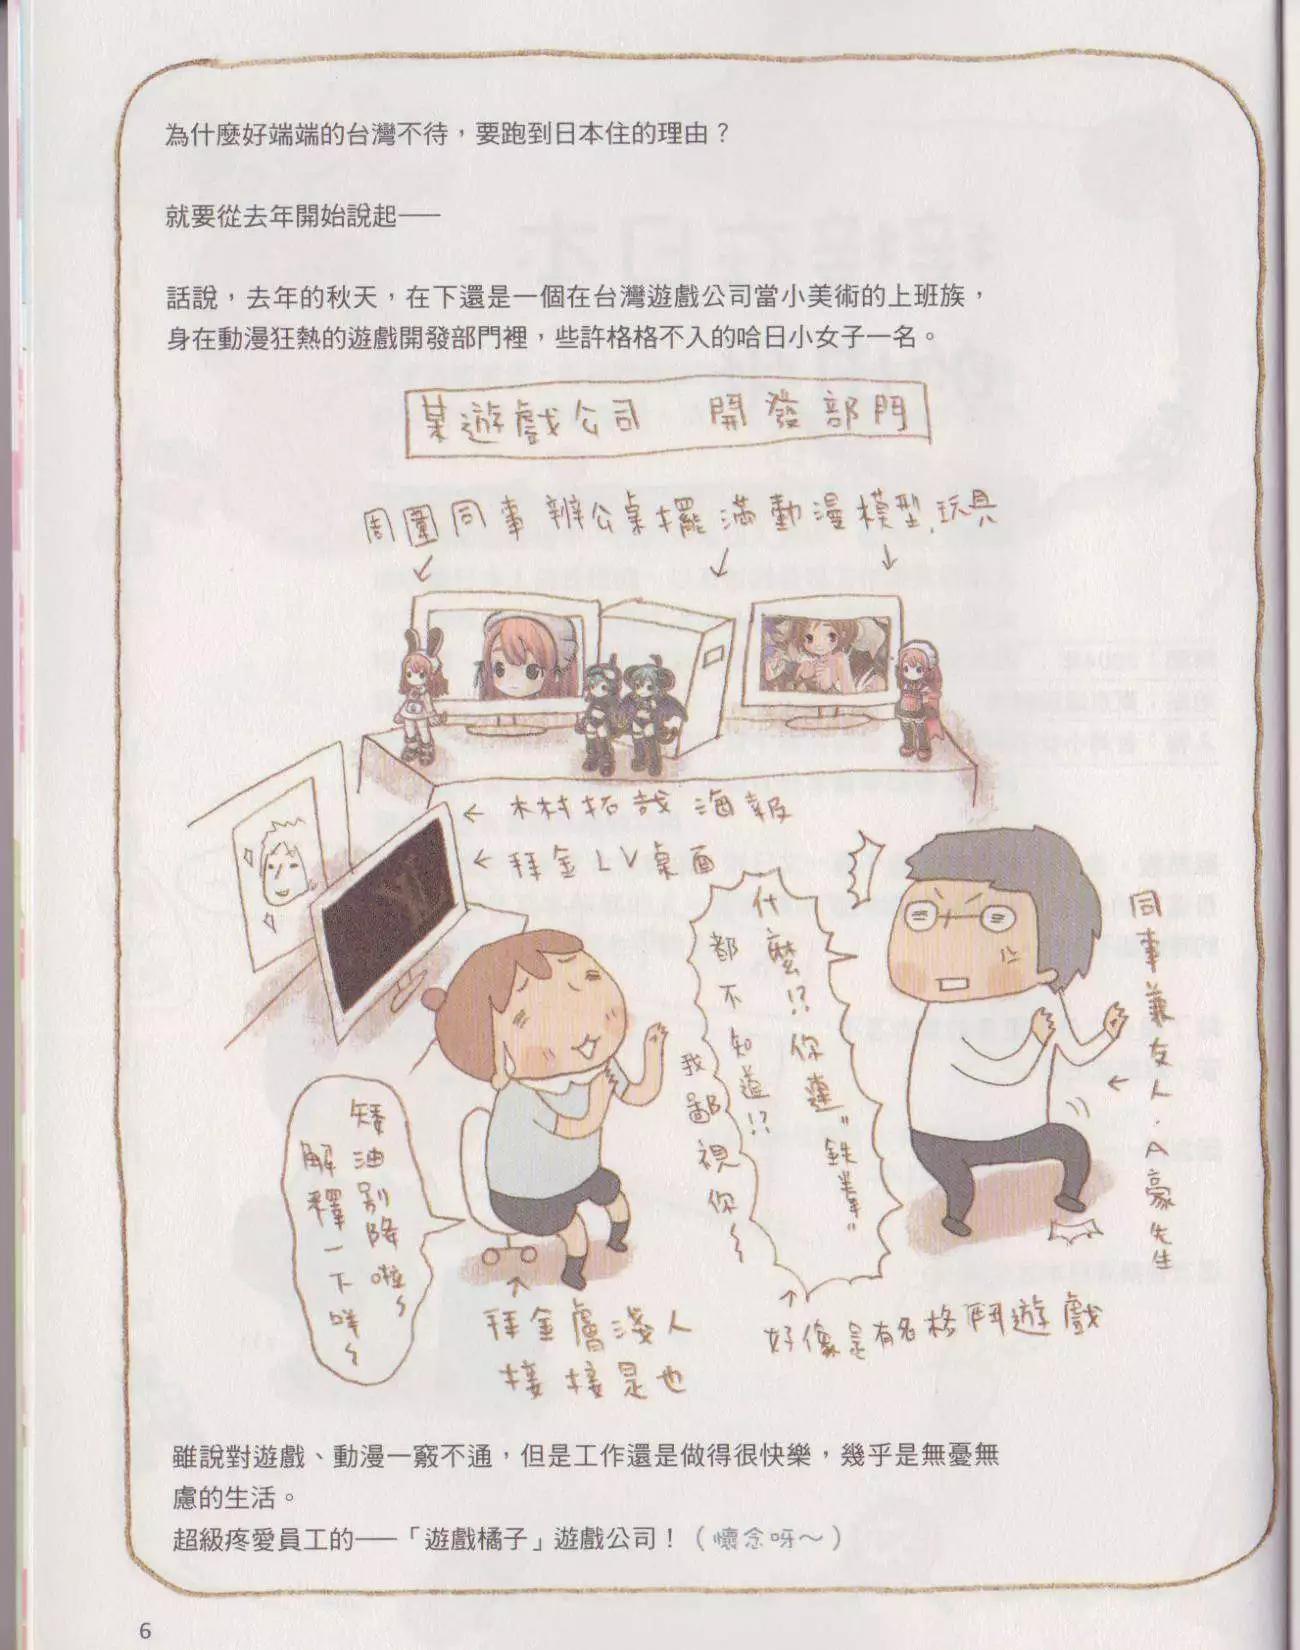 為什麼好端端的台灣不待，要跑到日本住的理由？
就要從去年開始說起——
話說，去年的秋天，在下還是一個在台灣遊戲公司當小美術的上班族，
身在動漫狂熱的遊戲開發部門裡，些許格格不入的哈日小女子一名。
某遊戲公司 開發部門
周圍同事辦公桌擺滿動漫模型、玩具
←木村拓哉海報
←拜金LV桌面
什麼!?你連"鉄拳"
都不知道!?
我鄙視你~
同事兼友人．A豪先生
矮油別降啦~
解釋一下咩~
拜金膚淺人
接接是也
好像是有名格鬥遊戲
雖說對遊戲、動漫一竅不通，但是工作還是做得很快樂，幾乎是無憂無
慮的生活。
超級疼愛員工的——「遊戲橘子」遊戲公司！（懷念呀～）
6